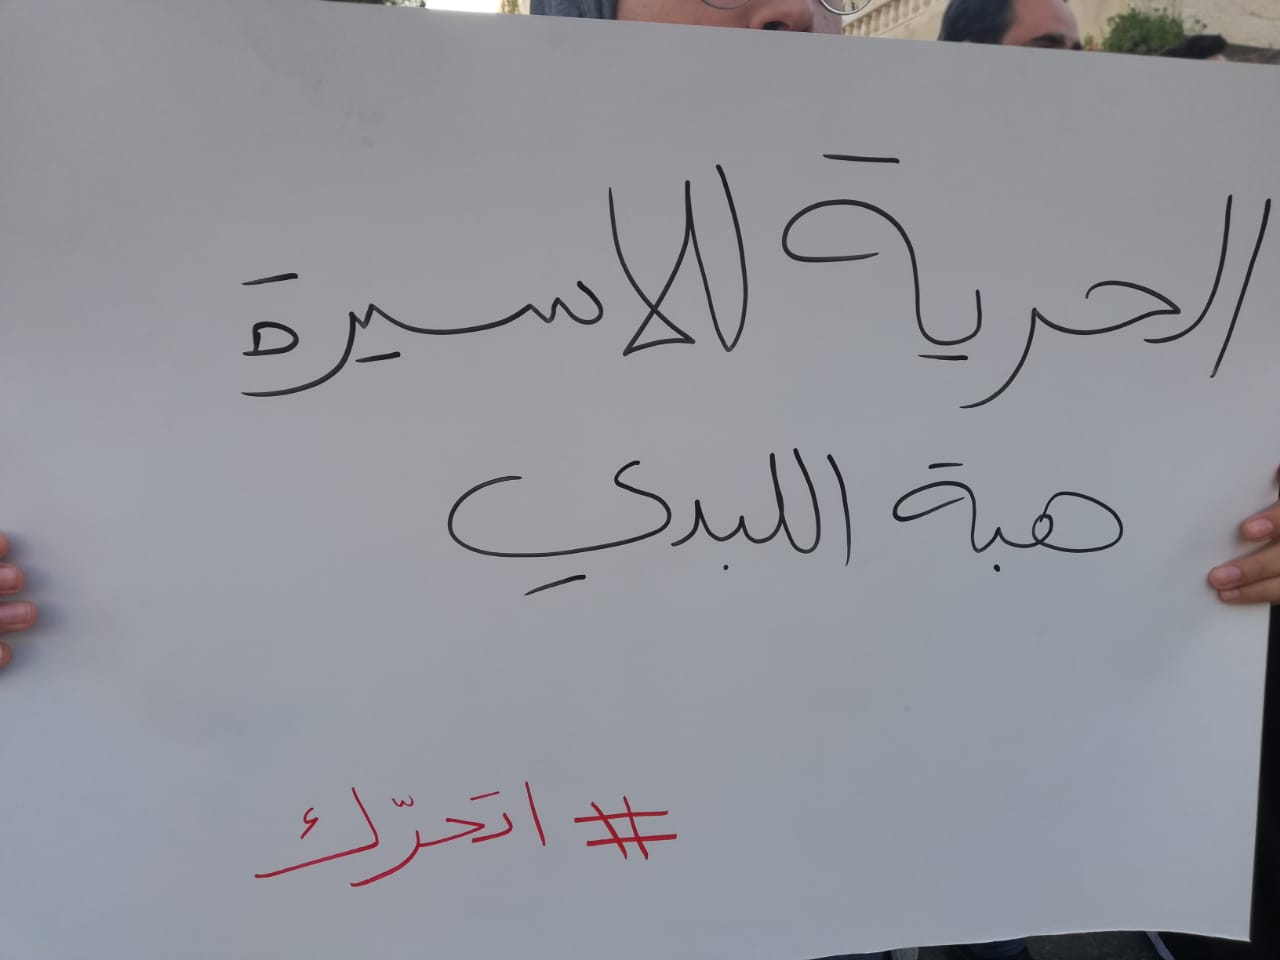 الحرية للاسيرة
هبة اللبدي
# اتحرّك